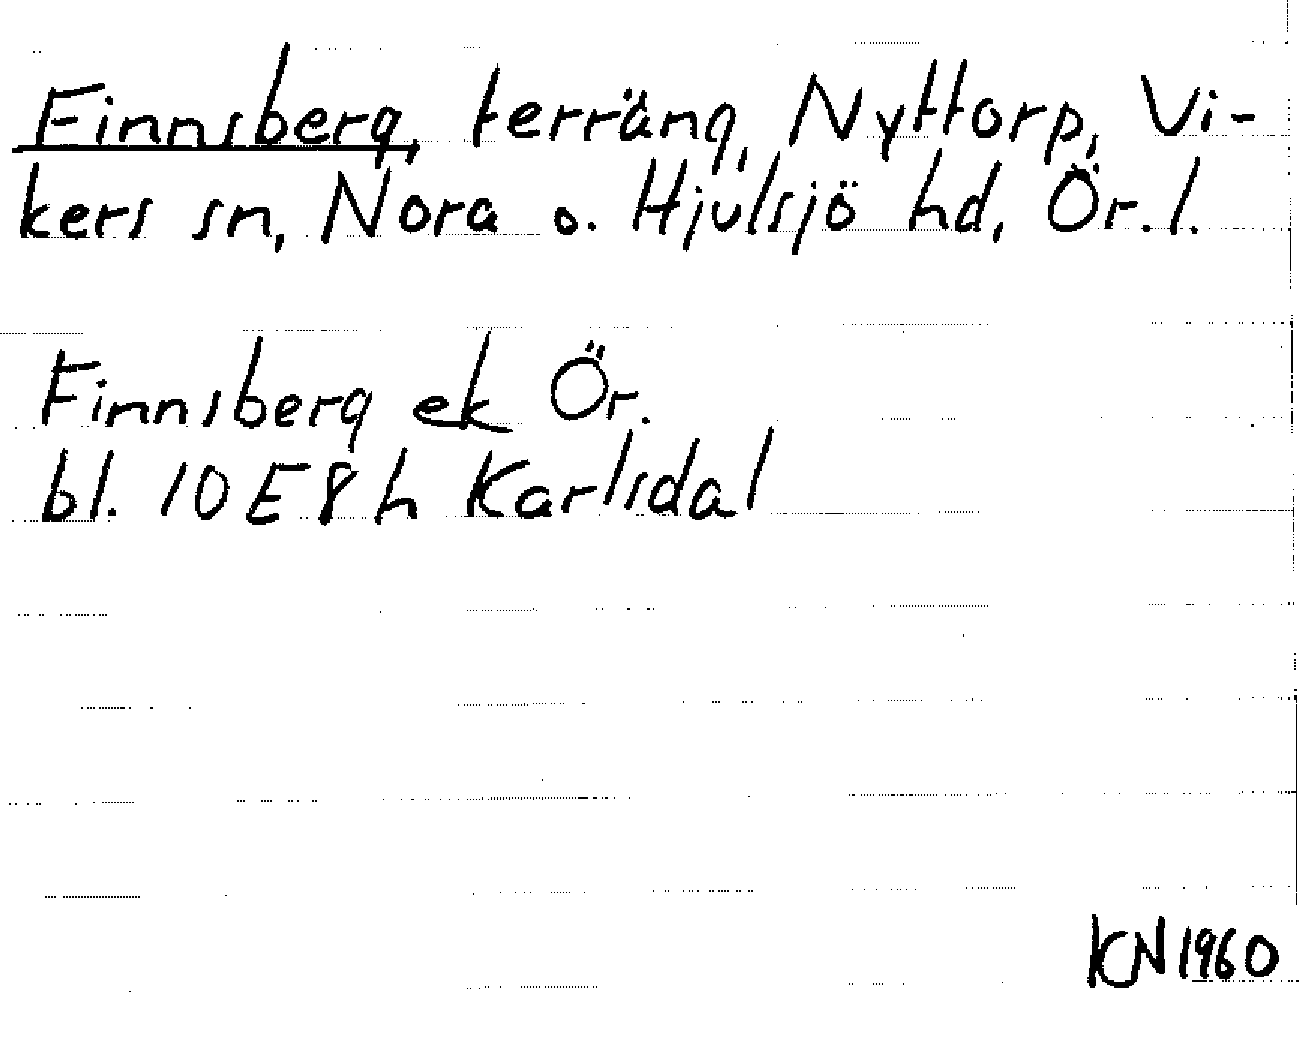 Finnsberg, terräng, Nyttorp, Vi-
kers sn, Nora o. Hjulsjö hd, Ör. l.
Finnsberg ek Ör.
bl. 10E8h Karlsdal
KN1960